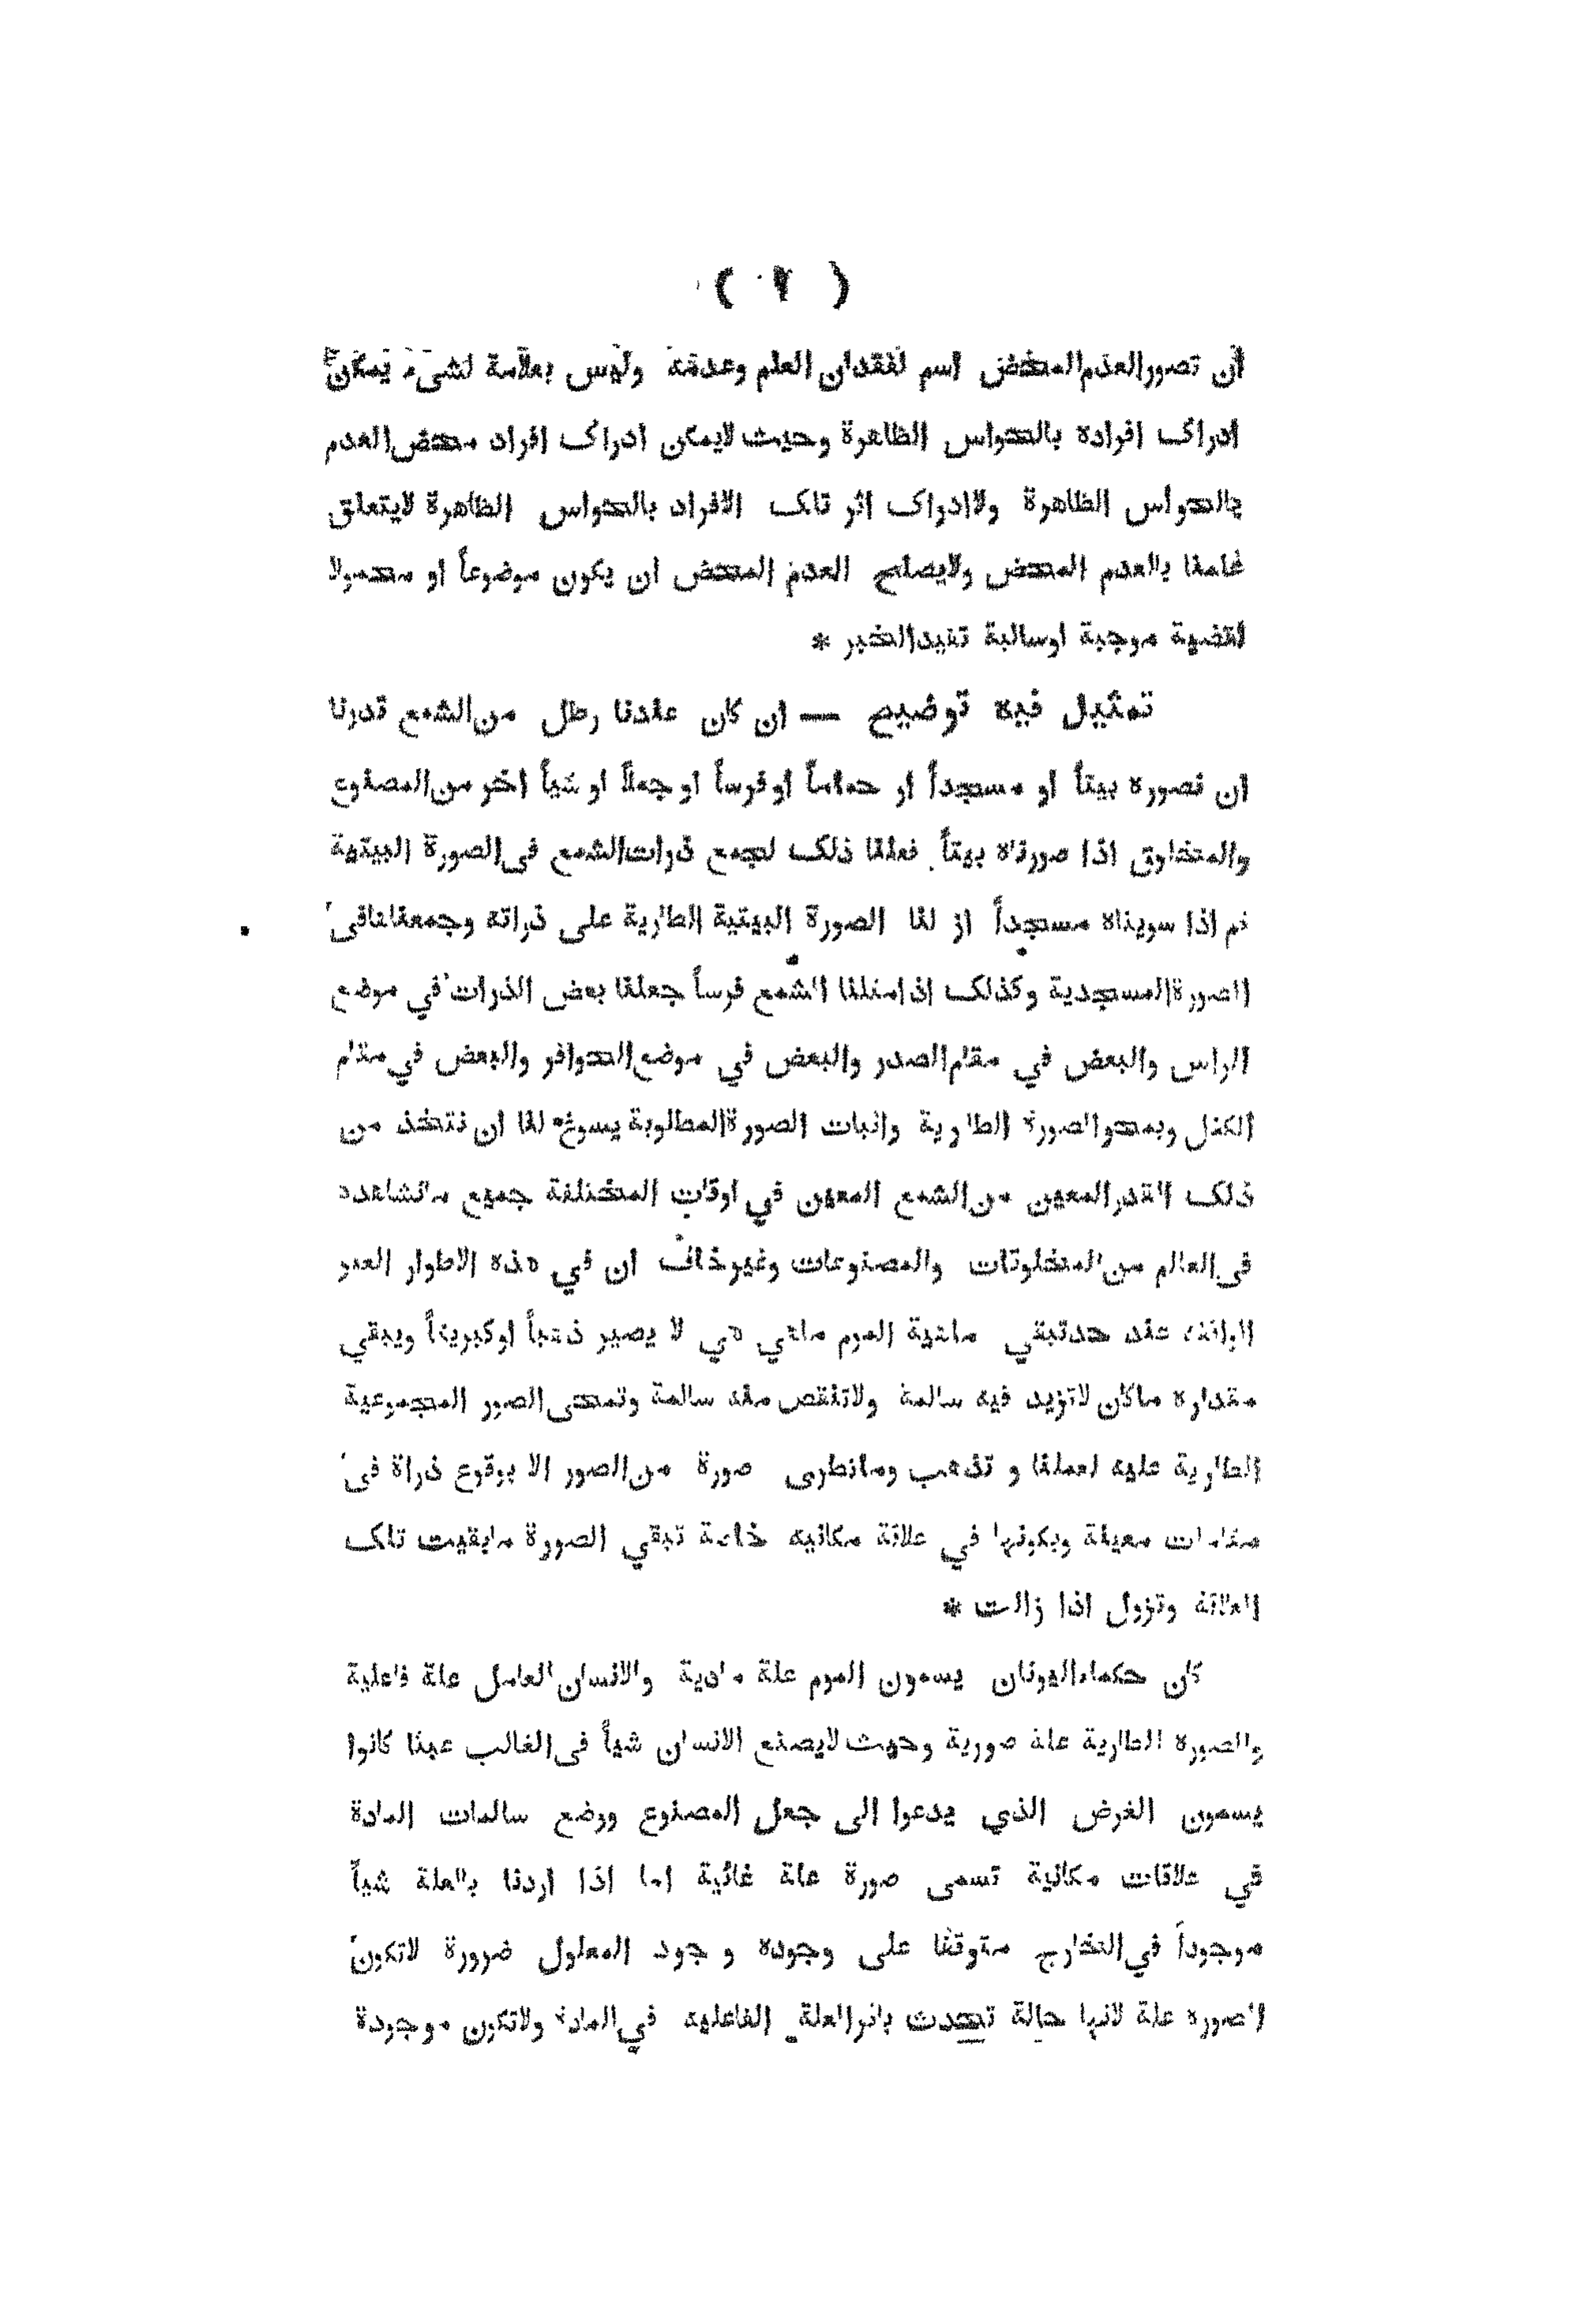 ( ٧ )
ان تصور العدم المحض اسم لفقدان العلم وعدمه وليس بعلامة لشىء يمكن
ادراك افراده بالحواس الظاهرة وحيث لايمكن ادراك افراد محض العدم
بالحواس الظاهرة ولاادراك اثر تلك الافراد بالحواس الظاهرة لايتعلق
علمنا بالعدم المحض ولايصلح العدم المحض ان يكون موضوعاً او محمولا
لقضية موجبة اوسالبة تفيد الخبر *
تمثيل فيه توضيح — ان كان عندنا رطل من الشمع قدرنا
ان نصوره بيتاً او مسجداً او حماماً اوفرساً او جملاً او شياً اخر من المصنوع
والمخلوق اذا صورناه بيتاً فعلنا ذلك لجمع ذرات الشمع فى الصورة البيتية
ثم اذا سويناه مسجداً ازلنا الصورة البيتية الطارية على ذراته وجمعناها فى
الصورة المسجدية وكذلك اذا مثلنا الشمع فرساً جعلنا بعض الذرات في موضع
الراس والبعض في مقام الصدر والبعض في موضع الحوافر والبعض في مقام
الكفل وبمحو الصورة الطارية واثبات الصورة المطلوبة يسوغ لنا ان نتخذ من
ذلك القدر المعين من الشمع المعين في اوقات المختلفة جميع مانشاهده
فى العالم من المخلوقات والمصنوعات وغير خاف ان في هذه الاطوار الغير
عند حد تبقي ماهية الموم ماهي هي لا يصير ذهباً اوكبريتاً ويبقي
مقداره ماكان لاتزيد فيه سالمة ولاتنقص منه سالمة وتمحى الصور المجموعية
الطارية عليه لعملنا و تذهب وماتطرى صورة من الصور الا بوقوع ذراة فى
مقامات معينة وبكونها في علاقة مكانيه خاصة تبقي الصورة مابقيت تلك
العلاقة وتزول اذا زالت *
كان حكماء اليونان يسمون الموم علة مادية والانسان العامل علة فاعلية
والصورة الطارية علة صورية وحيث لايصنع الانسان شياً فى الغالب عبثا كانوا
يسمون الغرض الذي يدعوا الى جعل المصنوع ووضع سالمات المادة
في علاقات مكانية تسمى صورة علة غائية اما اذا اردنا بالعلة شياً
موجوداً في الخارج متوقفا على وجوده و جود المعلول ضرورة لاتكون
الصورة علة لانها حالة تحدث باثر العلة الفاعليه في المادة ولاتكون موجودة